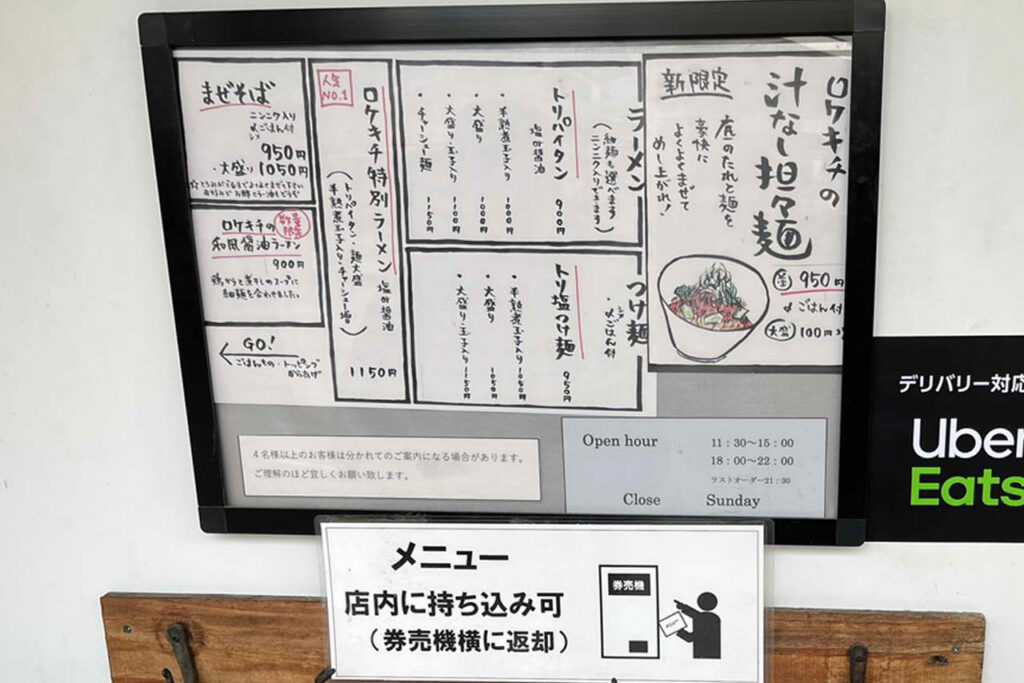 ロケキチの
汁なし担々麺
新限定
底のたれと麺を
豪快に
よくよくまぜて
めし上がれ!
950円
〆ごはん付
大盛 100円
ラーメン
(細麺も選べます
ニンニク入りできます)
トリパイタン 900円
塩or醤油
・半熟煮玉子入り 1000円
・大盛り 1000円
・大盛り・玉子入り 1100円
・チャーシュー麺 1150円
つけ麺
・〆ごはん付
トリ塩つけ麺 950円
・半熟煮玉子入り 1050円
・大盛り 1050円
・大盛り・玉子入り 1150円
人気
NO.1
ロケキチ特別ラーメン 塩or醤油
(トリパイタン・麺大盛
半熟煮玉子入り・チャーシュー増)
1150円
まぜそば
ニンニク入り
〆ごはん付
950円
・大盛り 1050円
数量
限定
ロケキチの
和風醤油ラーメン
900円
鶏がらと煮干しのスープに
細麺を合わせました
GO!
ごはんもの・トッピング
からあげ
4名様以上のお客様は分かれてのご案内になる場合があります。
ご理解のほど宜しくお願い致します。
Open hour 11:30~15:00
18:00~22:00
ラストオーダー21:30
Close Sunday
デリバリー対応
Uber
Eats
メニュー
店内に持ち込み可
(券売機横に返却)
券売機